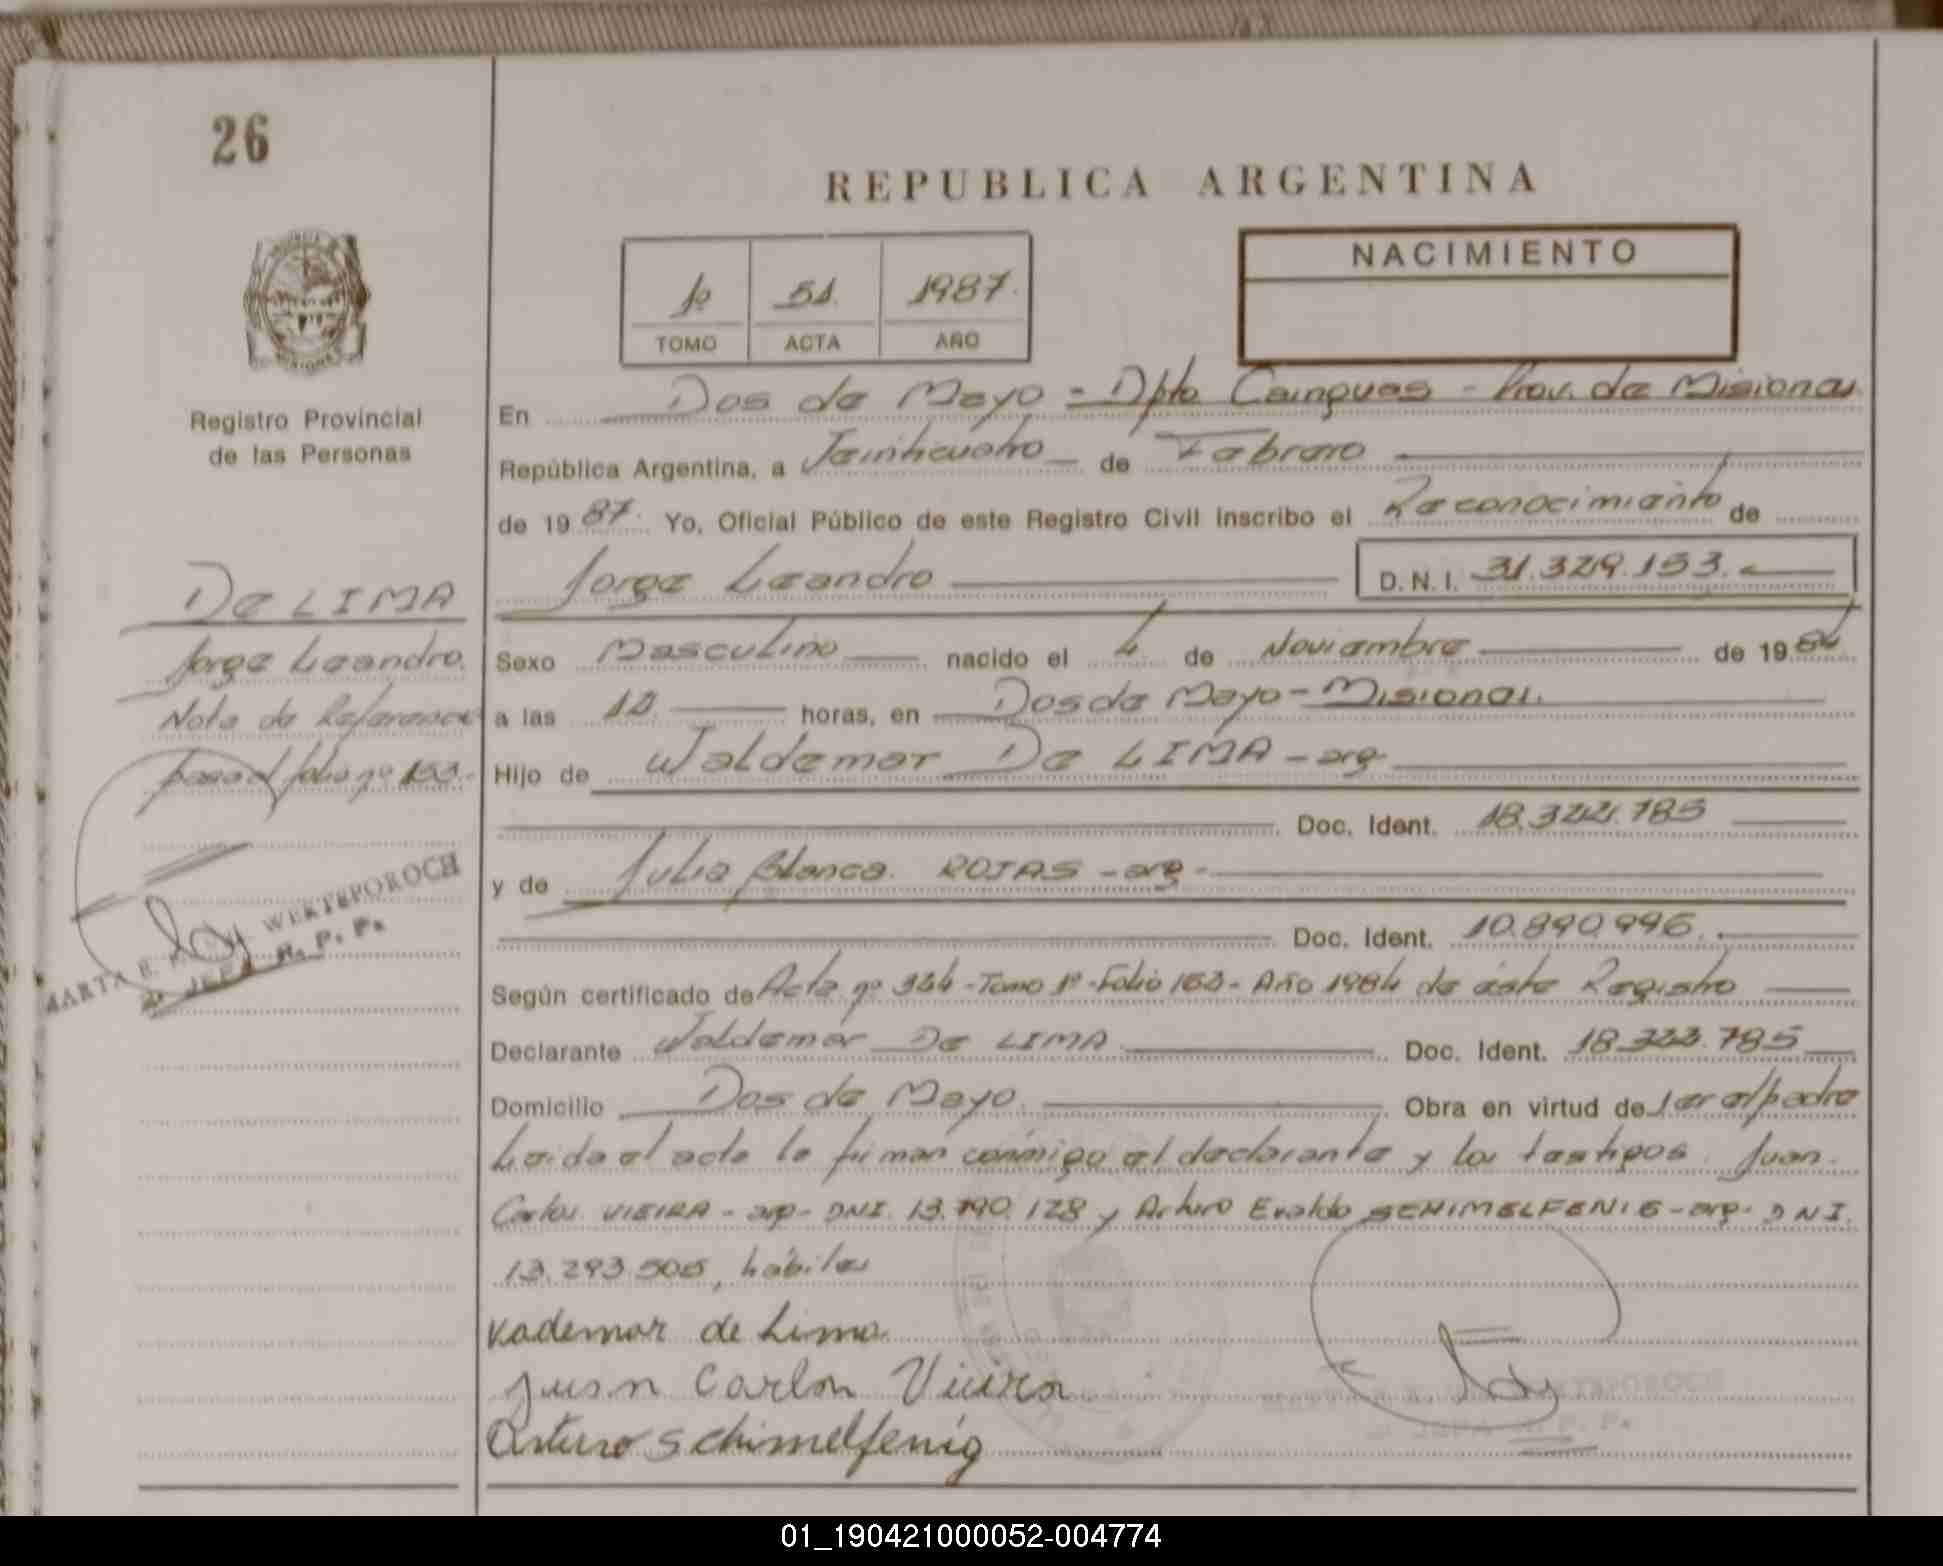 26
REPUBLICA ARGENTINA
NACIMIENTO
1º 51. 1987.
TOMO ACTA AÑO
Registro Provincial
de las Personas
En Dos de Mayo - Dpto Cainguas - Prov. de Misiones
República Argentina, a Veinticuatro de Febrero
de 1987. Yo, Oficial Público de este Registro Civil inscribo el Reconocimiento de
Jorge Leandro D.N.I. 31.329.153.
De LIMA
Jorge Leandro.
Nota de Referencia
pasa al folio nº 153.
MARTA E. WERTSPOROCH
JEFA R. P. P.
Sexo Masculino nacido el 4 de Noviembre de 1984
a las 12 horas, en Dos de Mayo - Misiones.
Hijo de Waldemar De LIMA - arg.
Doc. Ident. 18.322.785
y de Julia Blanca. ROJAS - arg -
Doc. Ident. 10.890.996.
Según certificado de Acta nº 364 - Tomo 1º - Folio 153 - Año 1984 de este Registro
Declarante Waldemar De LIMA Doc. Ident. 18.322.785
Domicilio Dos de Mayo. Obra en virtud de ser el padre
Leida el acta la firman conmigo el declarante y los testigos Juan
Carlos VIEIRA - arg - DNI. 13.790.128 y Arturo Evaldo SCHIMELFENIG - arg - DNI.
13.293.505, hábiles
Vademar de Lima
Juan Carlos Vieira
Arturo Schimelfenig
WERTSPOROCH
JEFA R. P. P.
01_190421000052-004774